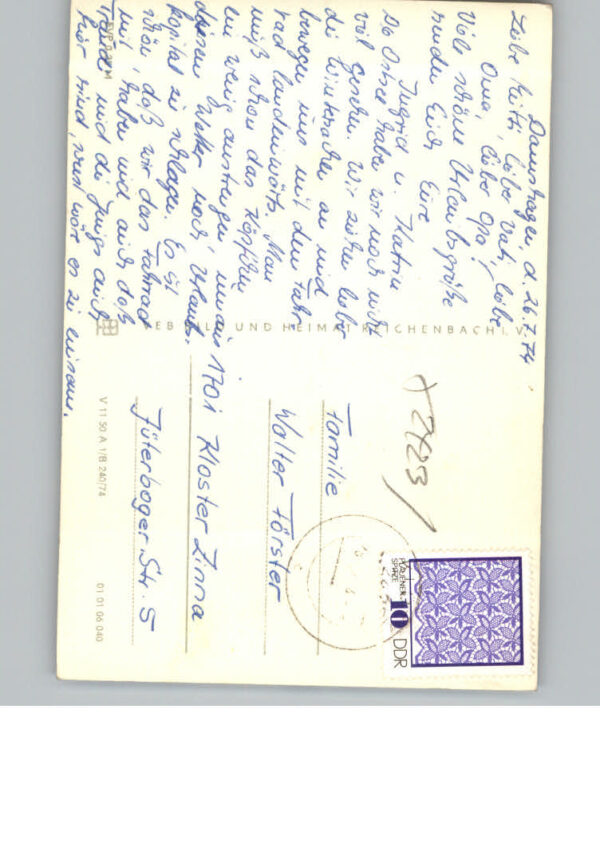 Damshagen, d. 26.7.74
Liebe Mutti, lieber Vati, liebe
Oma, lieber Opa!
Viele schöne Urlaubsgrüße
senden Euch Eure
Ingrid u. Katrin
Die Ostsee haben wir noch nicht
viel gesehen. Wir ziehen lieber
die Windjacken an und
bewegen uns mit dem Fahr
rad landeinwärts. Man
muß schon das Köpfchen
ein wenig anstrengen, um aus
diesem Wetter noch Urlaubs
kapital zu schlagen. Es ist
schön, daß wir das Fahrrad
mit haben und auch daß
und die Jungs auch
hier sind, sonst wär es zu einsam.
VEB BILD UND HEIMAT REICHENBACH I. V.
V 11 50 A 1/B 240/74
01 01 06 040
Familie
Walter Förster
1701 Kloster Zinna
Jüterboger Str. 5
PLAUENER
SPITZE
10 DDR